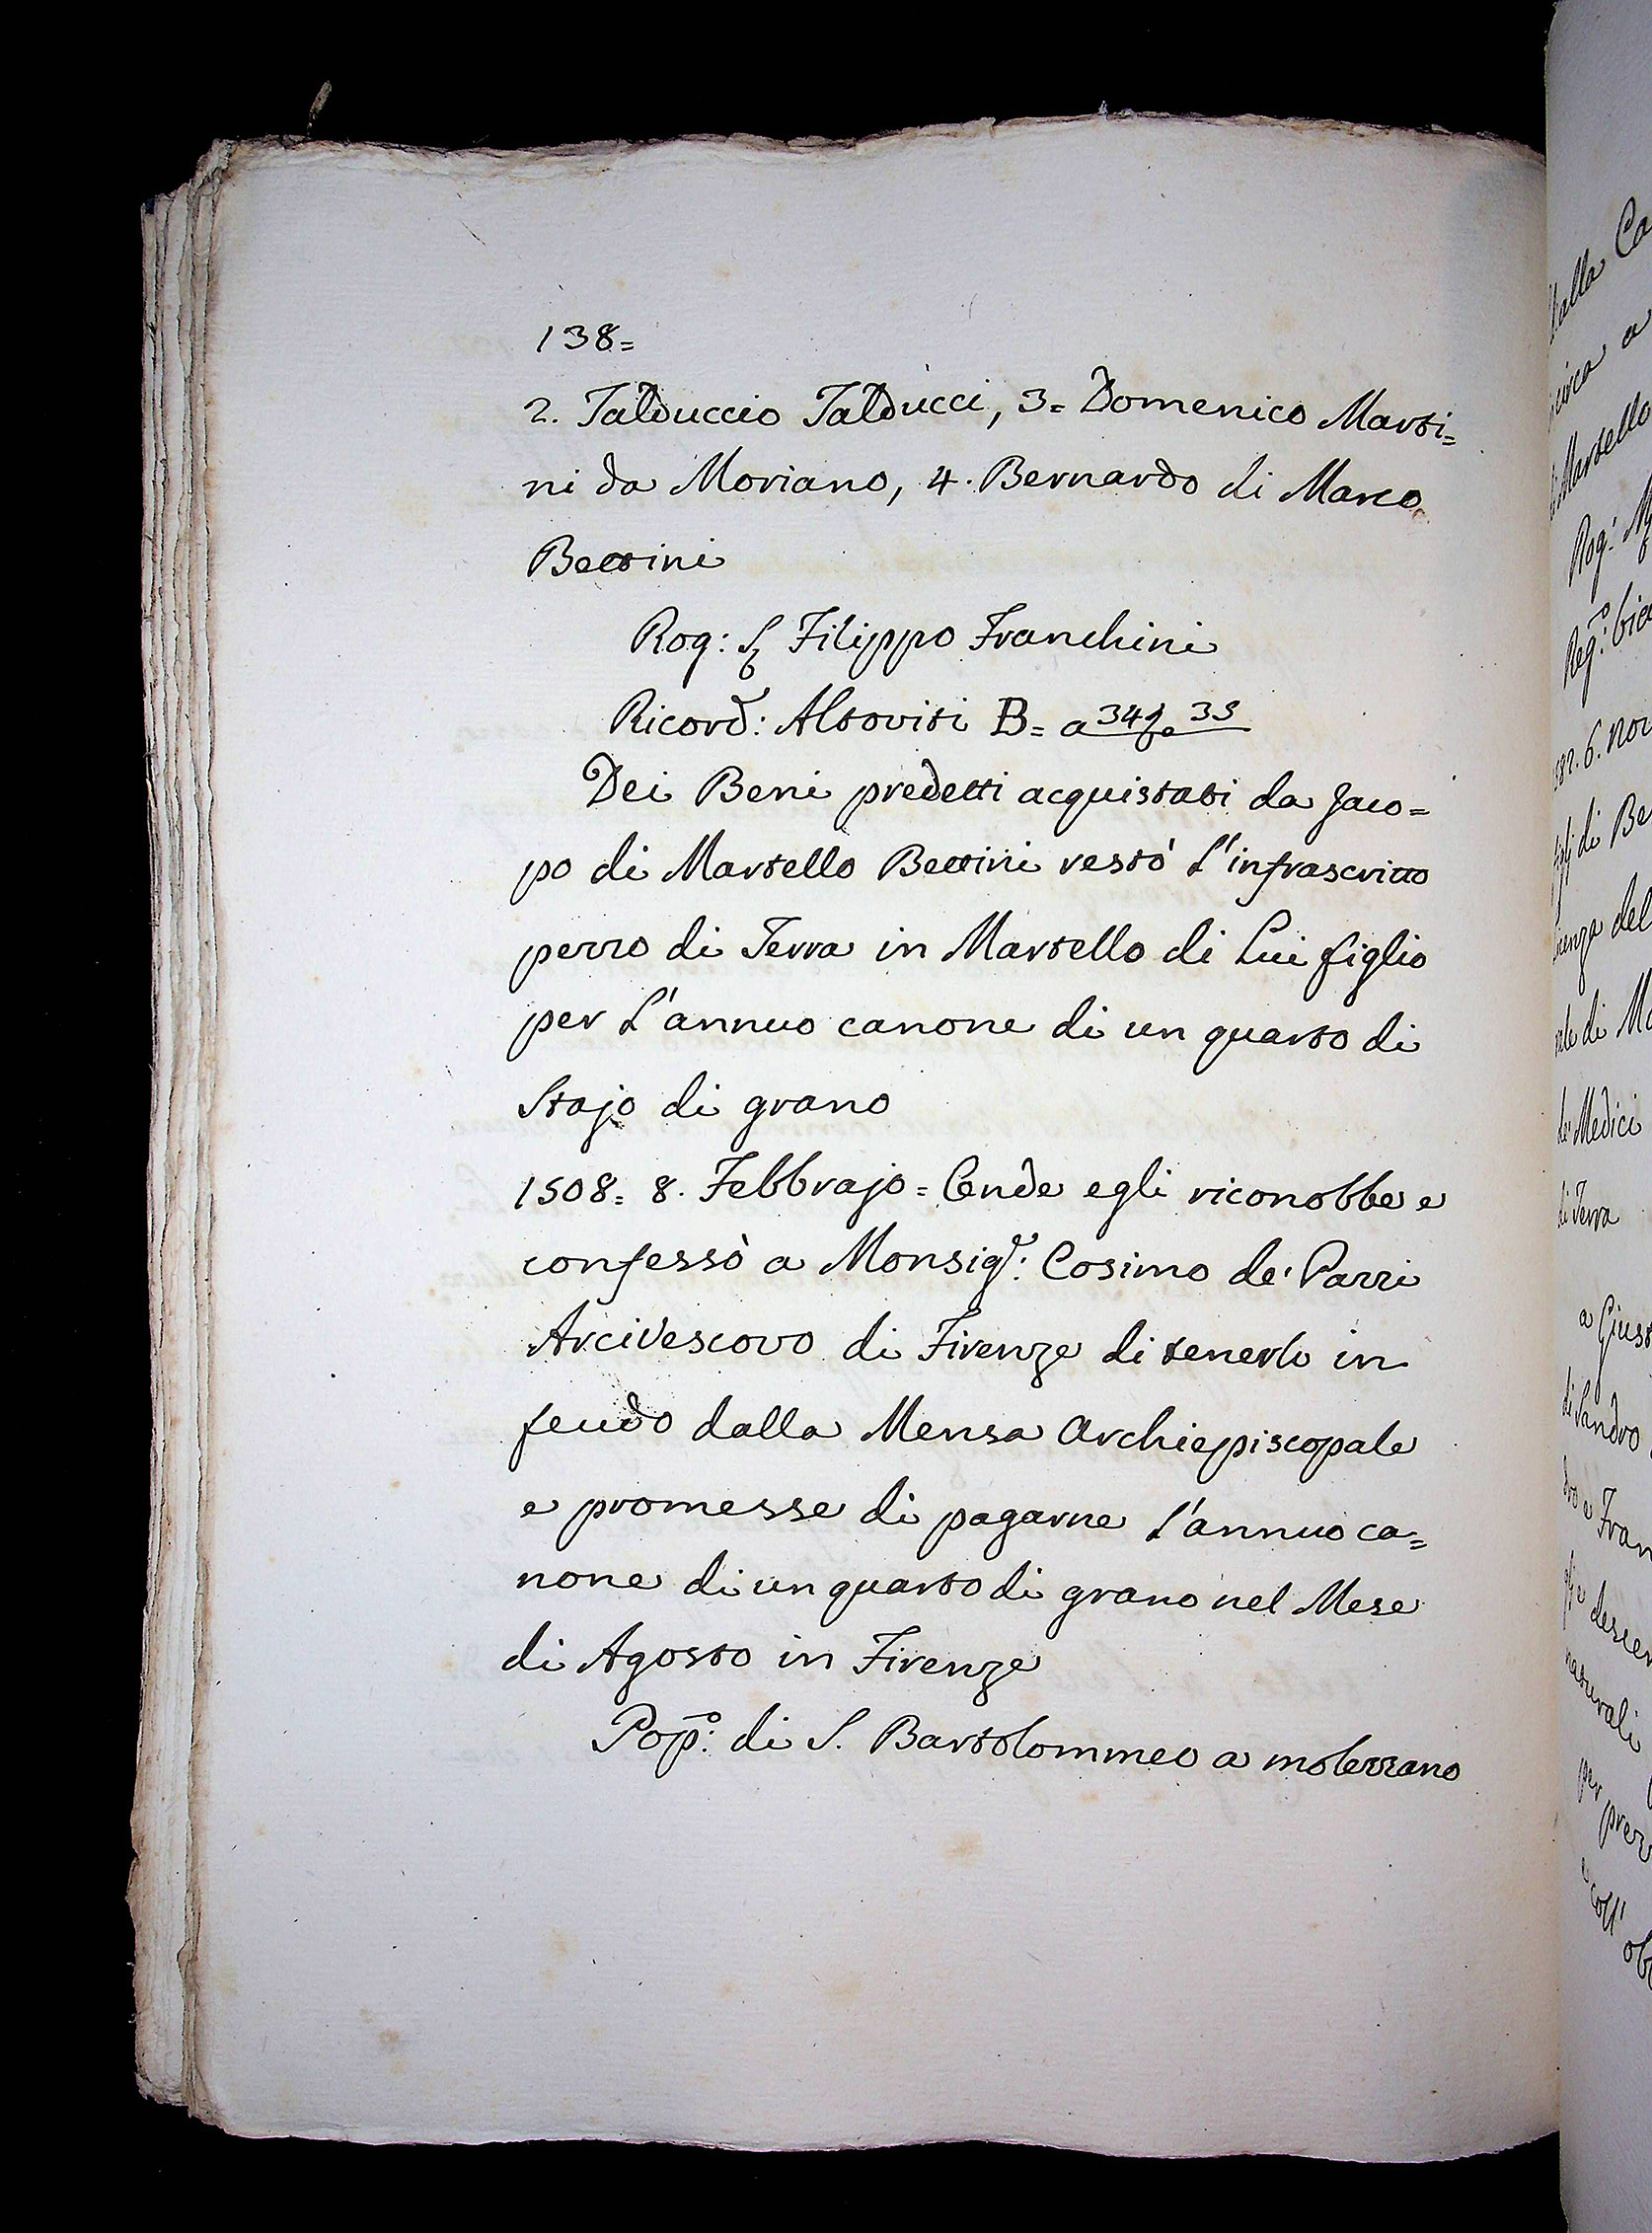 138=
2. Talduccio Talducci, 3= Domenico Marti=
ni da Moriano, 4. Bernardo di Marco
Bettini
Rog: Filippo Franchini
Ricord: Altoviti B= a
Dei Beni predetti acquistati da Jaco=
po di Martello Bettini restò l'infrascritto
pezzo di Terra in Martello di Lui figlio
per l'annuo canone di un quarto di
Stajo di grano
1508= 8. Febbrajo= Onde egli riconobbe e
confessò a Monsig.r: Cosimo de' Pazzi
Arcivescovo di Firenze di tenerlo in
feudo dalla Mensa Archiepiscopale
e promesse di pagarne l'annuo ca=
none di un quarto di grano nel Mese
di Agosto in Firenze
Pop.o: di S. Bartolommeo a molezzano
dalla Ca
circa a
di Martello
Rog:
6. Nov
di Be
del
di Ma
de' Medici
di Terra
a Giust
di Sandro
e Fran
e descen
naturali
per prez
e coll' ob